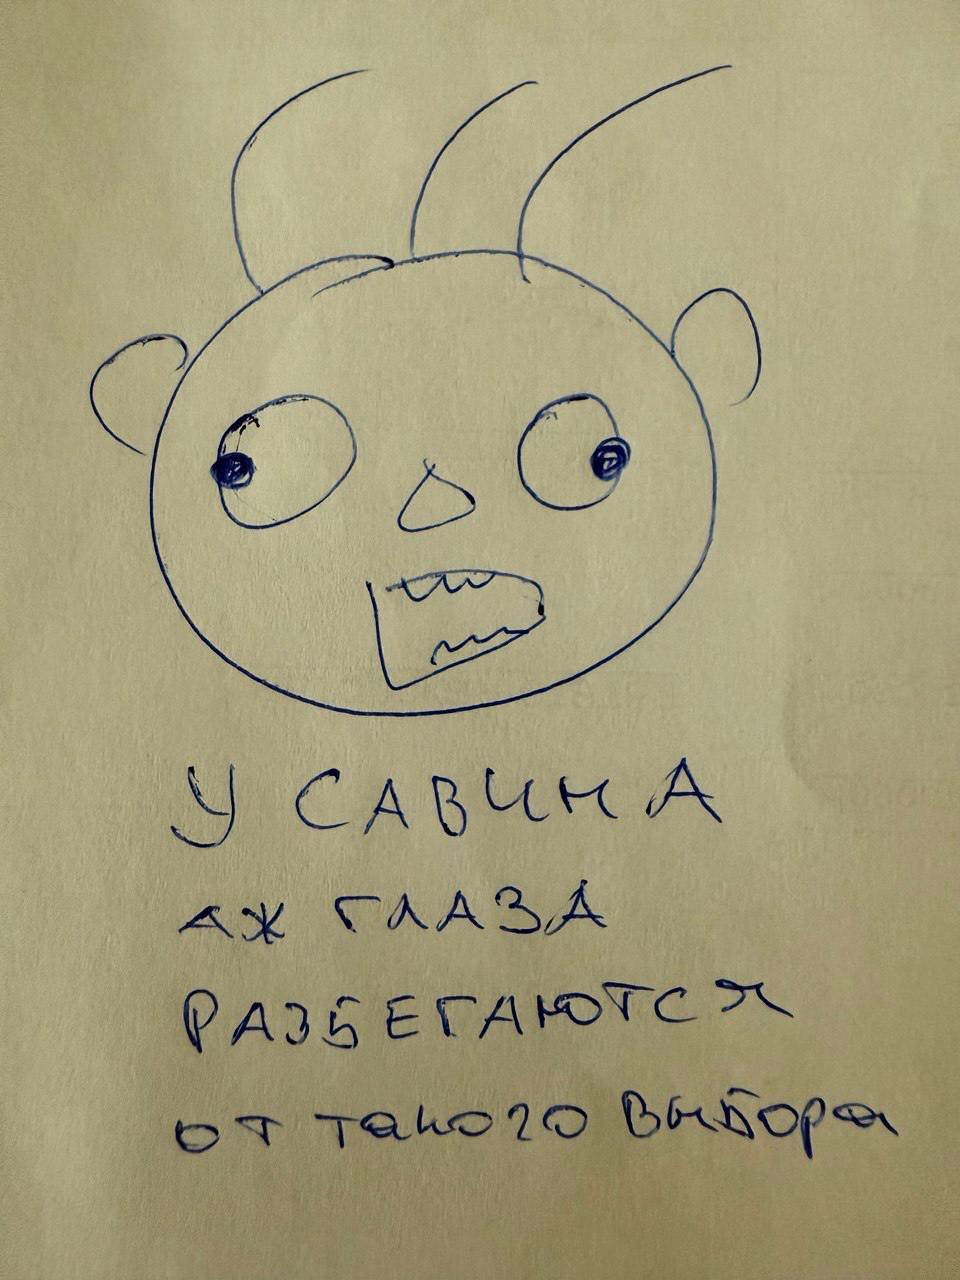 У САВИНА
АЖ ГЛАЗА
РАЗБЕГАЮТСЯ
от такого выбора